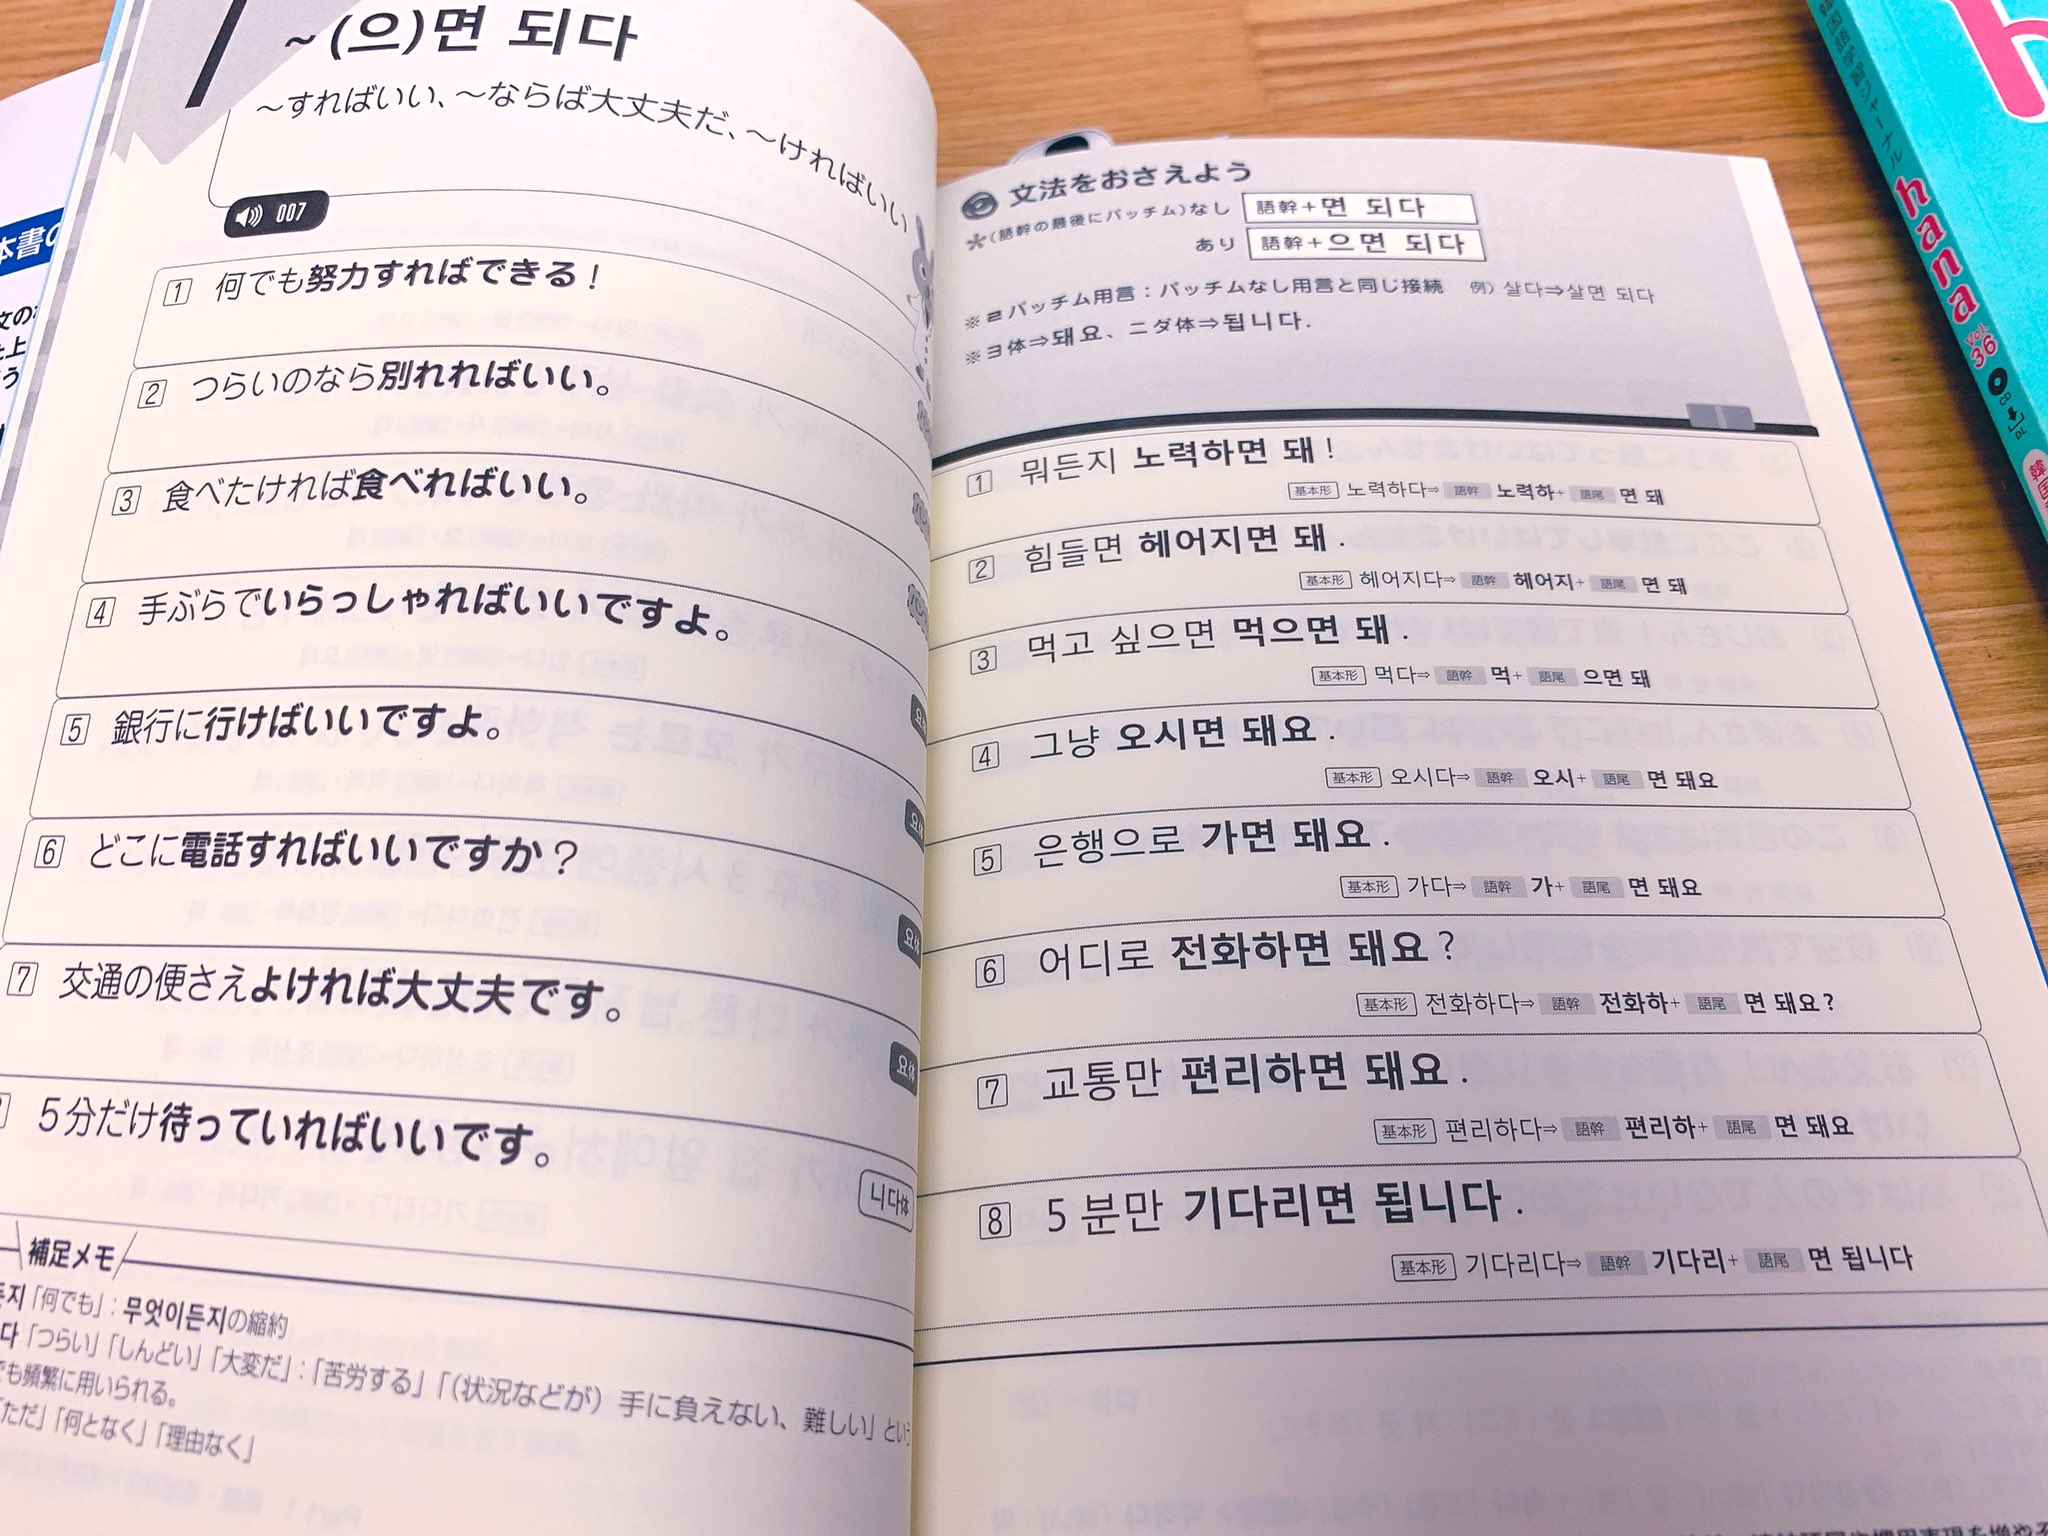 ~(으)면 되다
～すればいい、～ならば大丈夫だ、～ければいい
007
1 何でも努力すればできる！
2 つらいのなら別れればいい。
3 食べたければ食べればいい。
4 手ぶらでいらっしゃればいいですよ。
5 銀行に行けばいいですよ。
6 どこに電話すればいいですか？
7 交通の便さえよければ大丈夫です。
5分だけ待っていればいいです。
니다体
補足メモ
든지「何でも」：무엇이든지の縮約
다「つらい」「しんどい」「大変だ」：「苦労する」「(状況などが) 手に負えない、難しい」という
でも頻繁に用いられる。
「ただ」「何となく」「理由なく」
文法をおさえよう
*(語幹の最後にパッチム)なし 語幹+면 되다
あり 語幹+으면 되다
※ㄹパッチム用言：パッチムなし用言と同じ接続 例) 살다⇒살면 되다
※ヨ体⇒돼요、ニダ体⇒됩니다.
1 뭐든지 노력하면 돼!
基本形 노력하다⇒ 語幹 노력하+ 語尾 면 돼
2 힘들면 헤어지면 돼.
基本形 헤어지다⇒ 語幹 헤어지+ 語尾 면 돼
3 먹고 싶으면 먹으면 돼.
基本形 먹다⇒ 語幹 먹+ 語尾 으면 돼
4 그냥 오시면 돼요.
基本形 오시다⇒ 語幹 오시+ 語尾 면 돼요
5 은행으로 가면 돼요.
基本形 가다⇒ 語幹 가+ 語尾 면 돼요
6 어디로 전화하면 돼요?
基本形 전화하다⇒ 語幹 전화하+ 語尾 면 돼요?
7 교통만 편리하면 돼요.
基本形 편리하다⇒ 語幹 편리하+ 語尾 면 돼요
8 5분만 기다리면 됩니다.
基本形 기다리다⇒ 語幹 기다리+ 語尾 면 됩니다
韓国語学習ジャーナル hana vol. 36
本書の